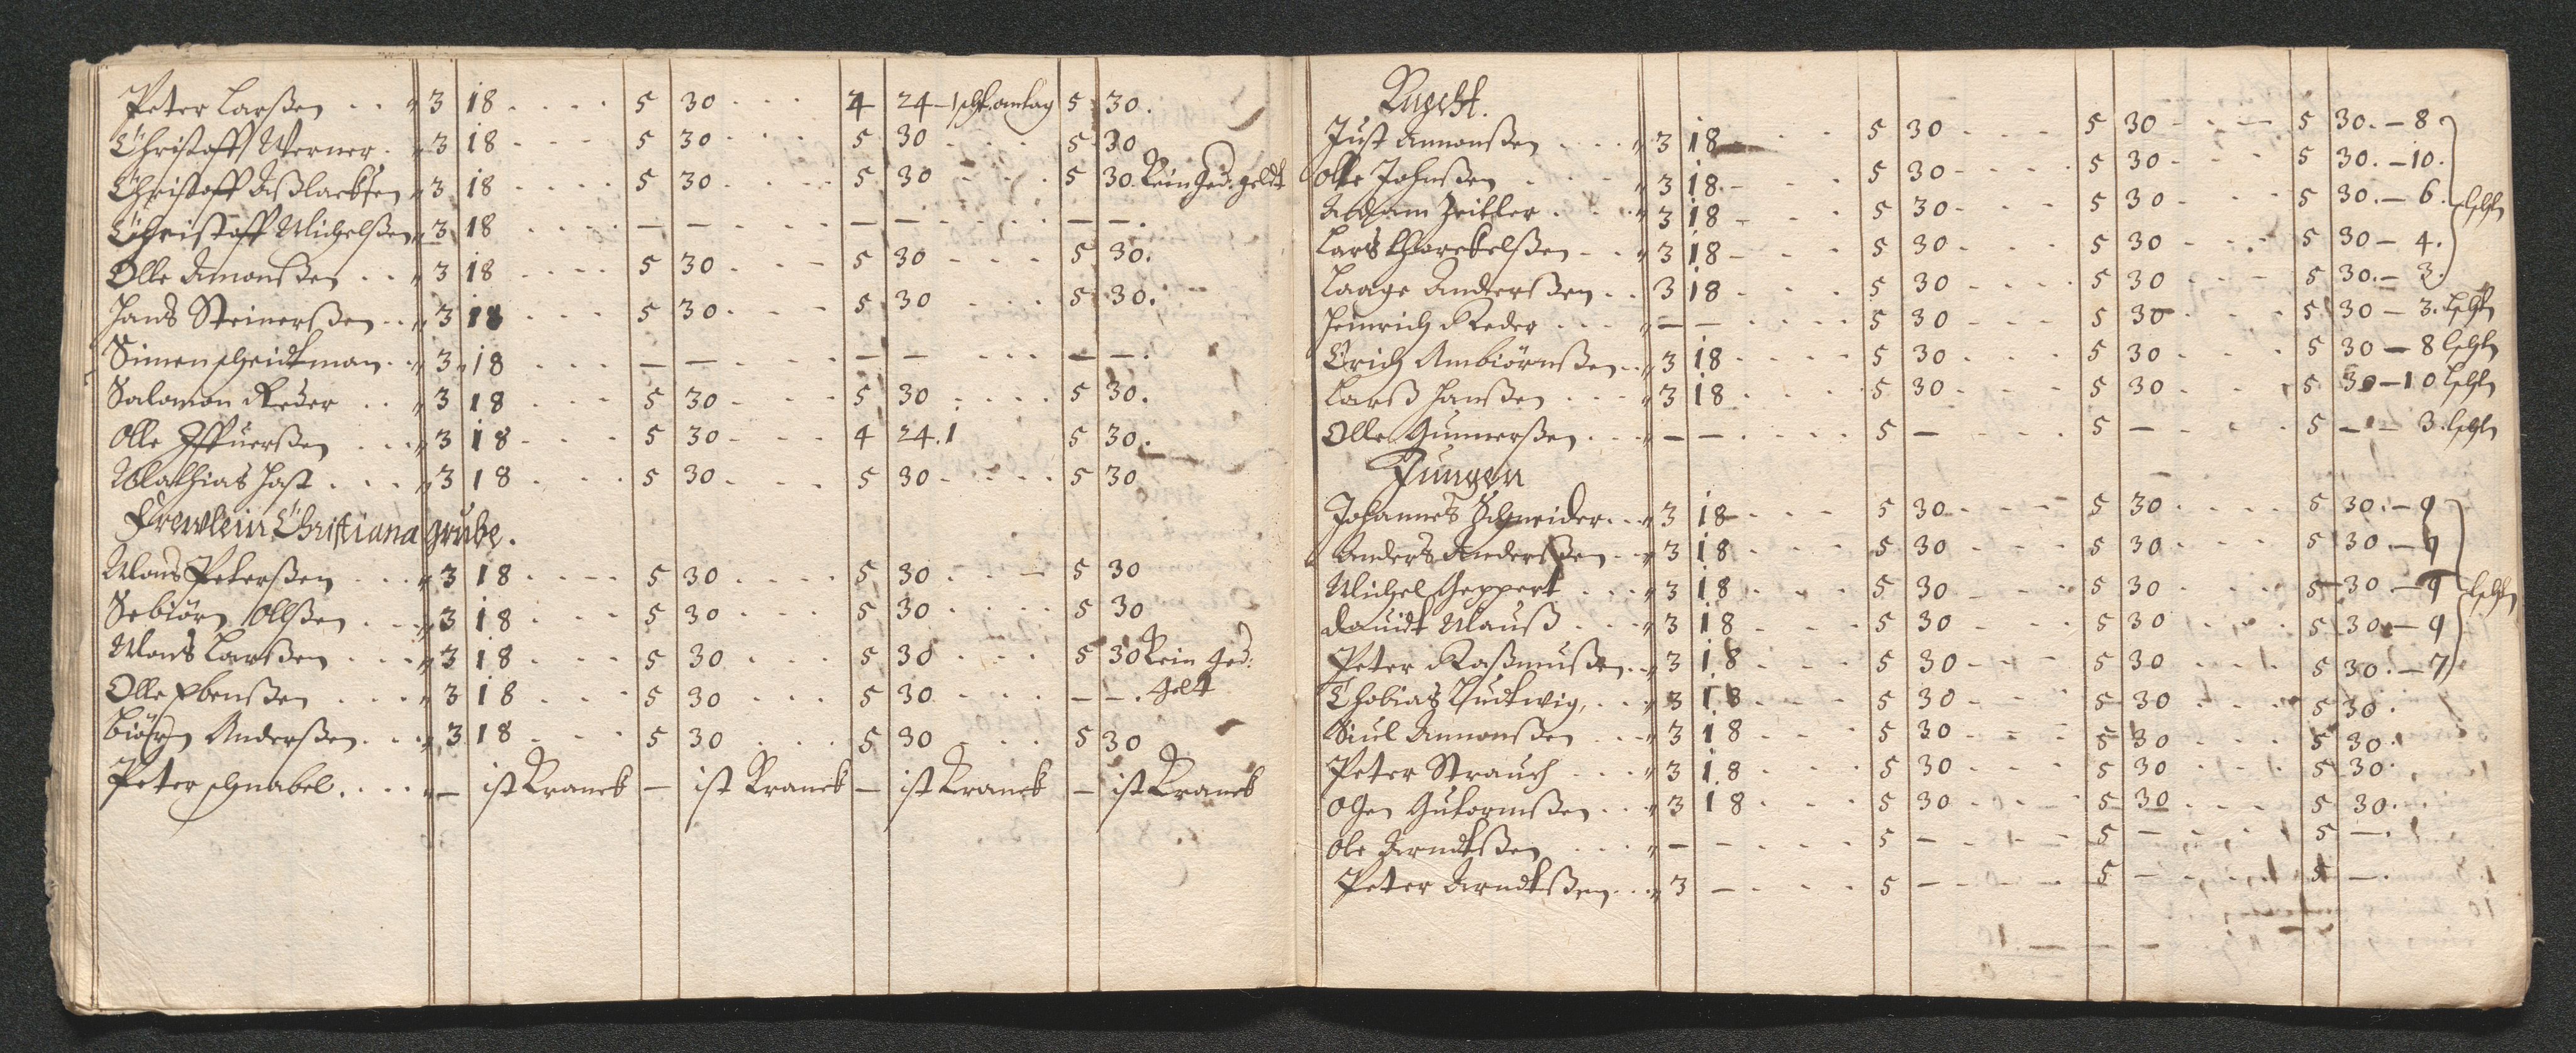 Peter Larßen . . „ 3 18 . . . . 5 30 . . . 4 24 – 1 5 30.
Christoff Werner . „ 3 18 - - - 5 30 - - - 5 30 - - - 5 30
Christoff „ 3 18 - - - 5 30 - - - 5 30 - - - 5 30. Kein Ged. geldt
Christoff Michelßen „ 3 18 - - - — — - - - — — - - - — —.
Olle Amonßen . . „ 3 18 - - - 5 30 - - - 5 30 - - - 5 30.
Hans Steinerßen . . „ 3 18 - - - 5 30 - - - 5 30 - - - 5 30.
Simen Heidtman . . „ 3 18 - - - — — - - - — — - - - — —.
Salomon Reder . . „ 3 18 - - - 5 30 - - - 5 30 - - - 5 30.
Olle . . „ 3 18 - - - 5 30 - - - 4 24. 1 5 30.
Mathias Jost . . . „ 3 18 - - - 5 30 - - - 5 30 - - - 5 30
Frewlein Christiana grube.
Mons Peterßen . . . „ 3 18 . . . . 5 30 . . . . 5 30 . . . - 5 30
Sebiörn Olßen . . . „ 3 18 . . . 5 30 . . . 5 30 . . . . 5 30
Mons Larßen . . . „ 3 18 . . . 5 30 . . . 5 30 . . . 5 30 Kein Ged:
geldt
Olle Ebenßen . . . „ 3 18 . . . 5 30 . . . 5 30 . . . — —.
Biörn Anderßen . . . „ 3 18 . . . 5 30 . . . 5 30 . . . 5 30
Peter Schnabel . . . . „ — ist Kranck — ist Kranck — ist Kranck — ist Kranck
Knecht.
Just Amonßen . . . . „ 3 18 - - - 5 30 - - - 5 30 - - - 5 30. – 8
Olle Johnßen . . . . „ 3 18. - - - 5 30 - - - 5 30 - - - 5 30. – 10.
Adam Zeitler . . . „ 3 18 - - - 5 30 - - - 5 30 - - - 5 30. – 6. schl
Lars Thorekelßen - - „ 3 18 - - - 5 30 - - - 5 30 - - - 5 30 – 4.
Laage Anderßen . . 3 18 - - - 5 30 - - - 5 30 - - - 5 30. – 3.
Heinrich Reder . . . „ — — . . . . 5 30 - - - 5 30 - - - 5 30 – 3. schl
Erich Ambiörnßen . . „ 3 18 . . . . 5 30 . . . 5 30 . . . 5 30 – 8 schl
Larß Hanßen . . . „ 3 18 . . . . 5 30 . . . 5 30 . . . 5 30 – 10 schl
Olle Gunnerßen . . . „ — — . . . . 5 — . . . 5 — . . . 5 — – 3. schl
Jungen
Johannes Schneider . . . „ 3 18 - - - 5 30 - - - 5 30 . . . . 5 30. – 9
Anders Anderßen . . „ 3 18 - - - 5 30 - - - 5 30 - - - 5 30 – 9
Michel Geppert . . . „ 3 18 . . . 5 30 . . . 5 30 . . . 5 30 – 9 schl
Dauidt Mauß . . . „ 3 18 - - - 5 30 - - - 5 30 . . . 5 30 – 9
Peter Raßmußen . . „ 3 18 . . . 5 30 - - - 5 30 . . . 5 30. – 7
Thobias Ludtwig, . . . „ 3 18 . . . 5 30 - - - 5 30 . . . 5 30.
Siul Amonßen . . . „ 3 18 . . . 5 30 - - - 5 30 . . . 5 30.
Peter Strauch . . . „ 3 18 . . . 5 30 . . . 5 30 . . . 5 30.
Ogen Gutormßen . . „ 3 18 . . . 5 30 . . . 5 30 . . . 5 30.
Ole Arndtßen . . . „ — — . . . 5 — . . . 5 — . . . 5 —.
Peter Arndtßen . . . „ 3 — . . . 5 — . . . 5 — . . . 5 —.